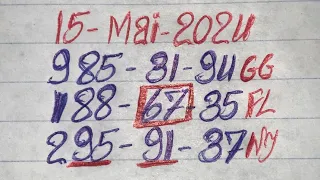 15-Mai-2024
985-31-94 GG
188-67-35 FL
295-91-37 NY